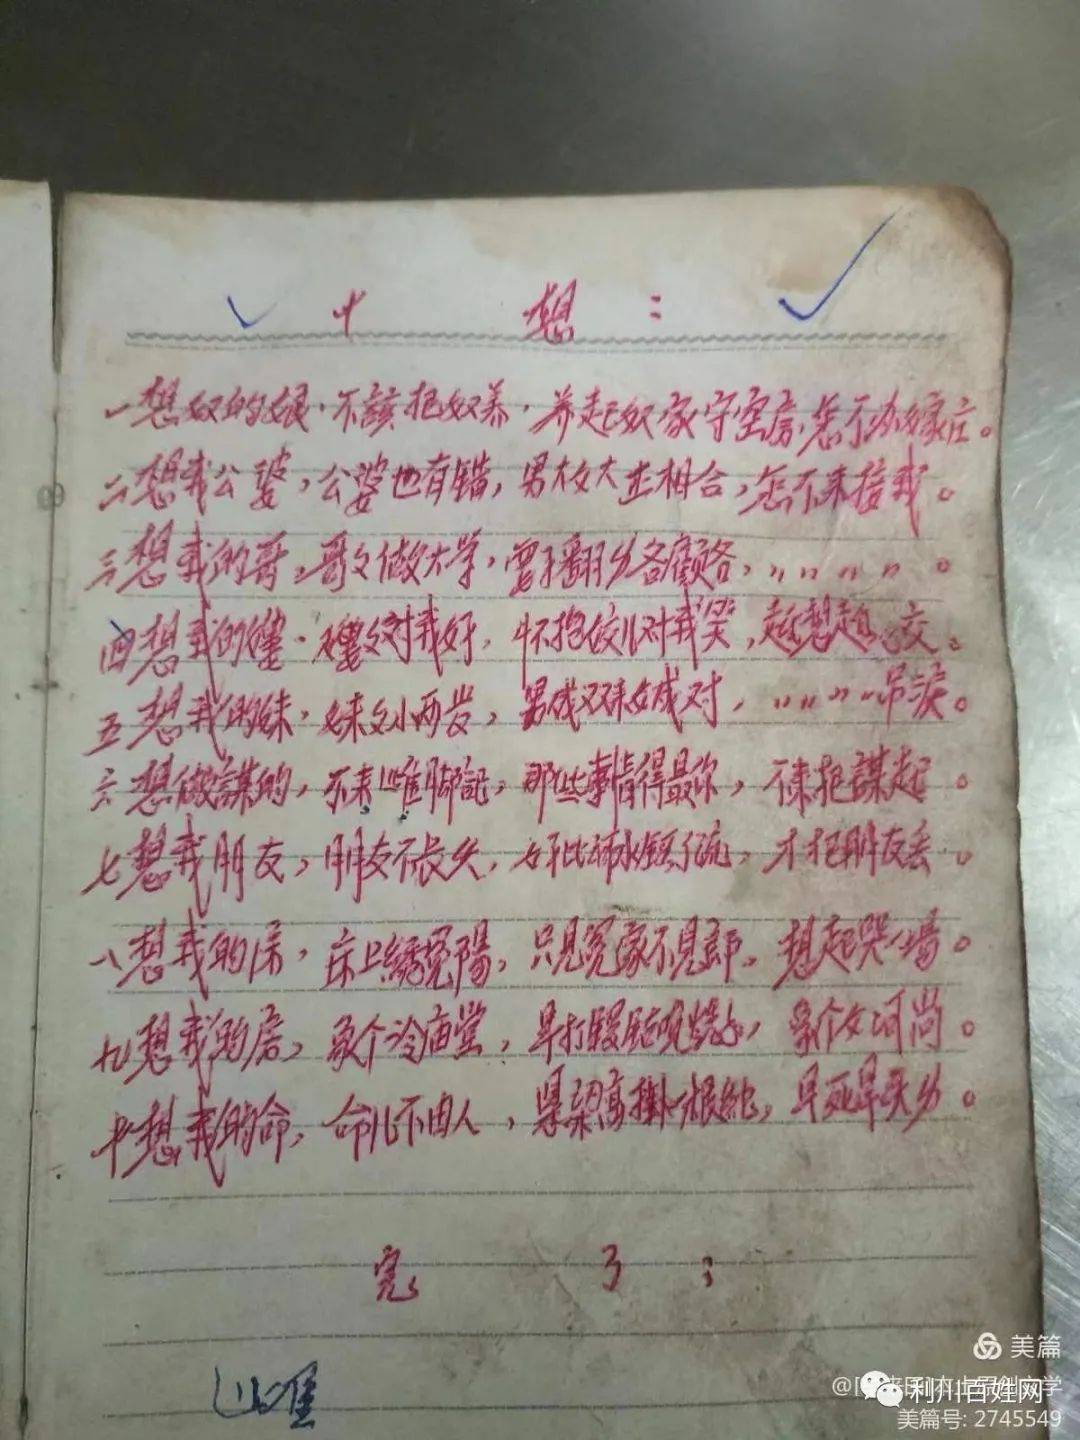 十 想：
一想奴的娘．不該把奴养．养起奴家守空房．怎不办嫁庄。
二想我公婆，公婆也有錯，男大女大正相合，怎不来接我。
三想我的哥，哥〻做大学，一个各顧各，〃〃〃〃〃。
四想我的嫂．嫂〻对我好，怀抱佼儿对我笑，越想越心交。
五想我的妹，妹〻小两岁，男成双来女成对，〃〃〃〃吊淚。
六想做謀的，不来脚記，那些事情得罪你，不来把謀起。
七想我朋友，朋友不长久，好比水頭了流，才把朋友丢。
八想我的床，床上綉鴛陽，只见冤家不见郎。想起哭一場。
九想我的房，象个冷庙堂，早打晚燒，象个女河尚。
十想我的命，命儿不由人，梁高掛一根繩，早死早。
完 了；
美篇
利川百姓网
美篇号: 2745549